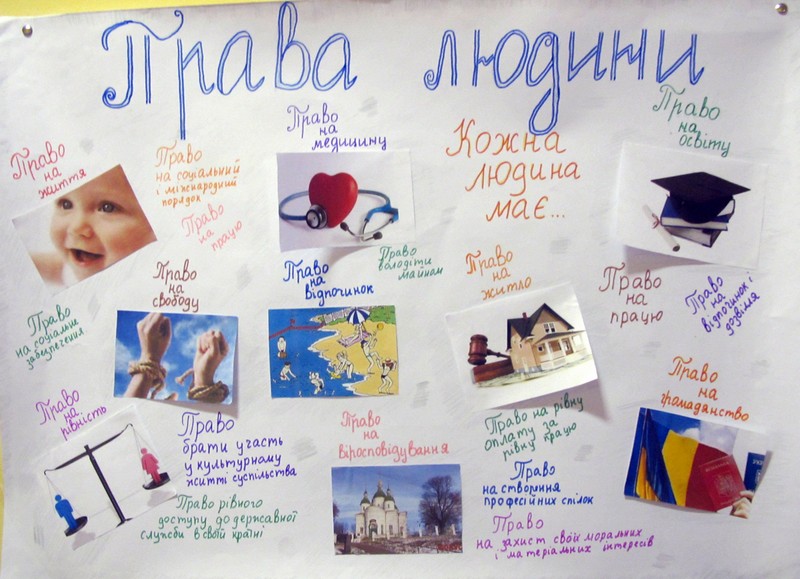 Права людини
Право
на
життя
Право
на соціальний
і міжнародний
порядок
Право
на
працю
Право
на
медицину
Кожна
людина
має...
Право
на
освіту
Право
на
свободу
Право
на
відпочинок
Право
володіти
майном
Право
на
житло
Право
на
працю
Право
на
відпочинок і
дозвілля
Право
на соціальне
забезпечення
Право
на
рівність
Право
брати участь
у культурному
житті суспільства
Право рівного
доступу до державної
служби в своїй країні
Право
на
віросповідування
Право на рівну
оплату за
рівну працю
Право
на створення
професійних спілок
Право
на захист своїй моральних
і матеріальних інтересів
Право
на
громадянство